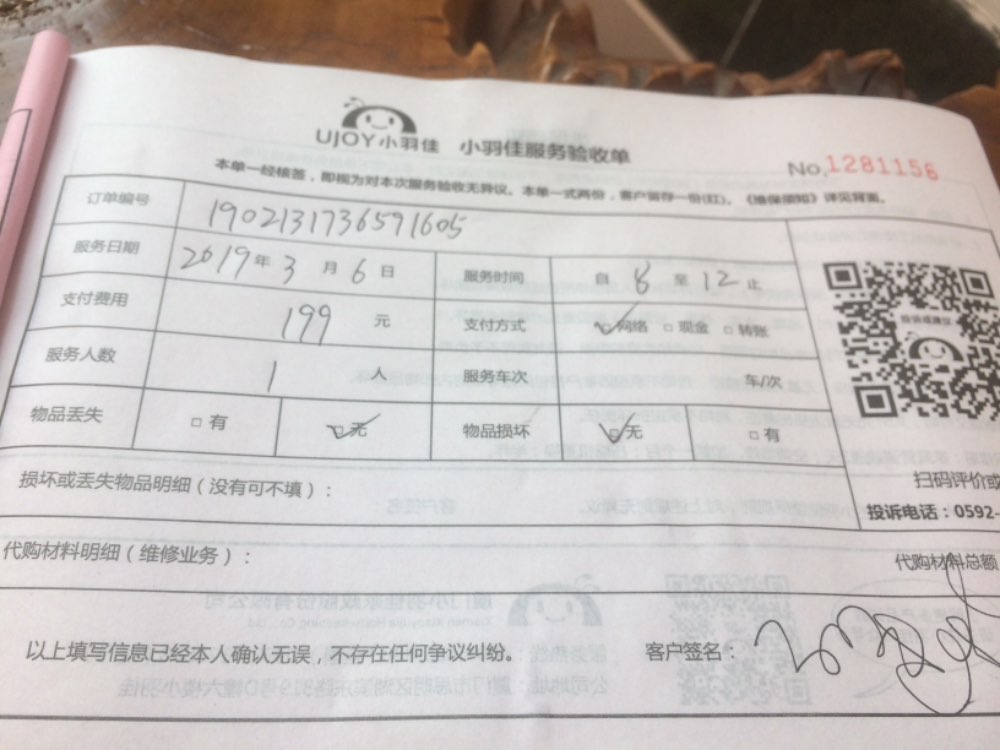 UJOY小羽佳 小羽佳服务验收单
No.1281156
本单一经核签，即视为对本次服务验收无异议。本单一式两份，客户留存一份(红)。《维保须知》详见背面。
订单编号 1902131736591605
服务日期 2019年3月6日 服务时间 自8至12止
支付费用 199元 支付方式 网络 现金 转账
服务人数 1人 服务车次 车/次
物品丢失 有 无 物品损坏 无 有
投诉或建议
扫码评价或
损坏或丢失物品明细（没有可不填）：
投诉电话：0592-
代购材料明细（维修业务）： 代购材料总额
以上填写信息已经本人确认无误，不存在任何争议纠纷。 客户签名：